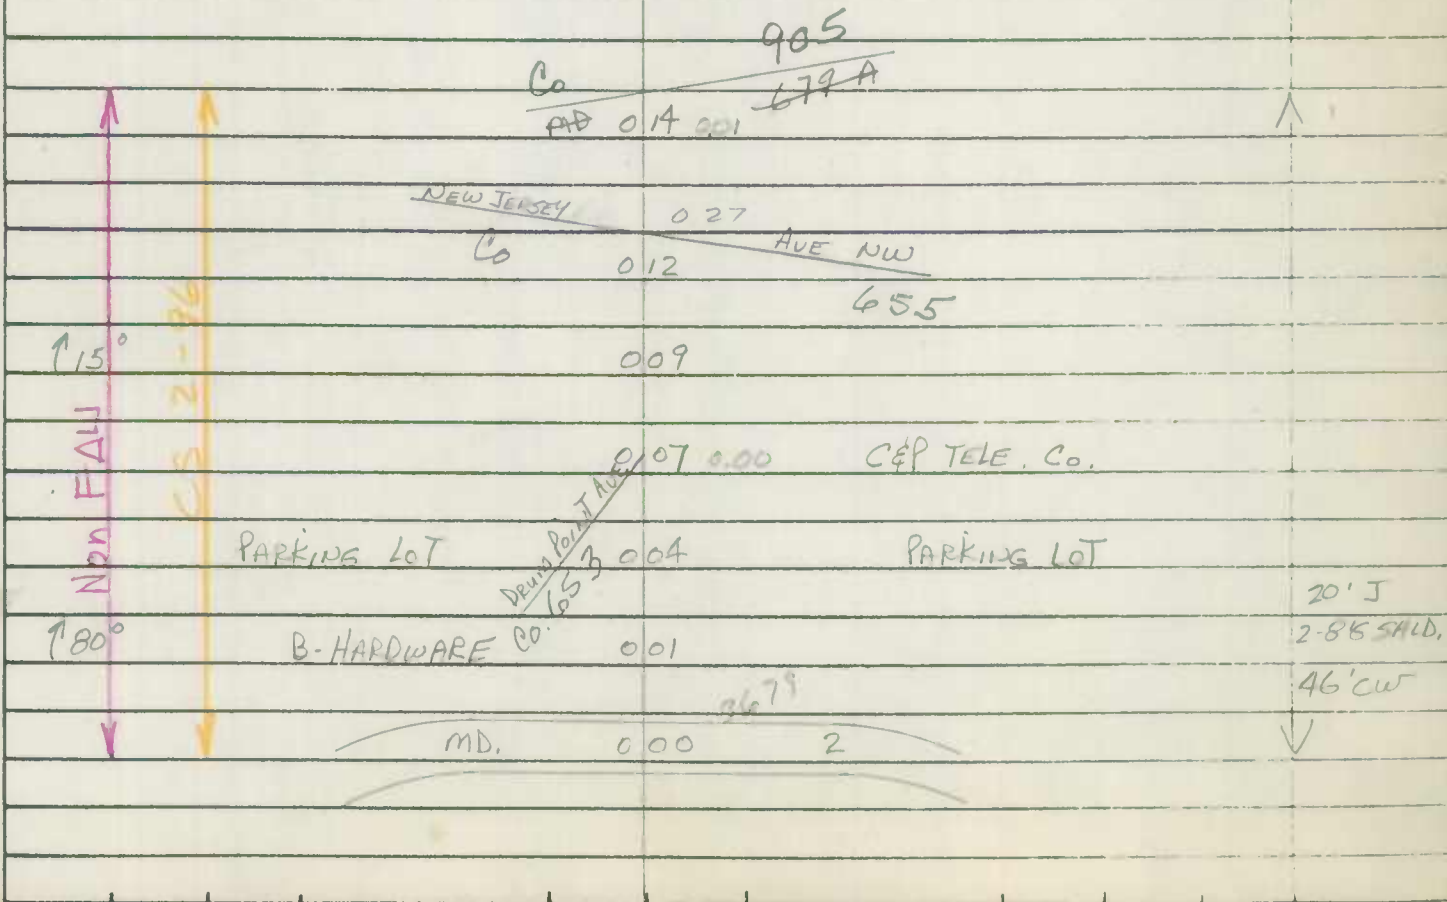 905
Co 679 A
0 14 001
NEW JERSEY 0 27
Co AVE NW
0 12
655
↑15° 009
CS 2-86
Non FAU
0 07 0.00 C&P TELE. Co.
DRUM POINT AVE
653
PARKING LOT 0 04 PARKING LOT
20' J
↑80° B-HARDWARE CO. 0 01 2-8'S
46' CW
3679
MD. 0 00 2